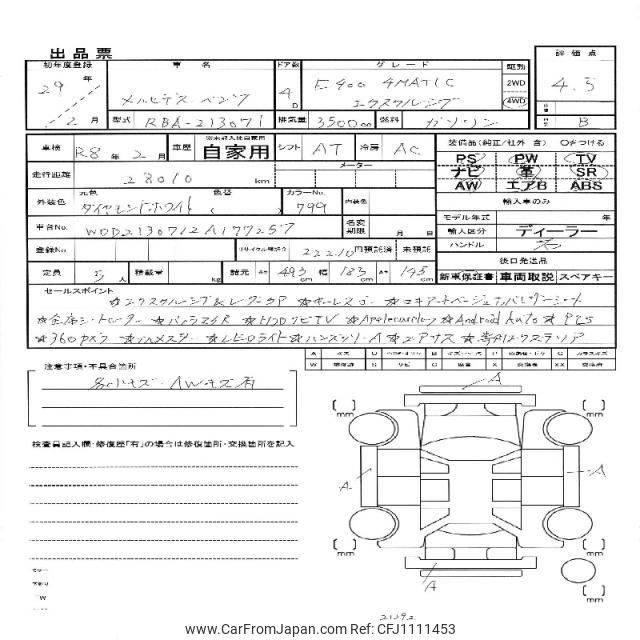 出品票
初年度登録 車名 ドア数 グレード 駆動 評価点
29年 2月
メルセデス・ベンツ
4D
E400 4MATIC
エクスクルーシブ
2WD
4WD
4.5
B
型式 RBA-213071 排気量 3500 cc 燃料 ガソリン
車検 R.8年 2月 車歴 自家用 シフト AT 冷房 AC
装備品(純正/社外 含) ○をつける
PS PW TV
ナビ 革 SR
AW エアB ABS
走行距離 28010 km メーター
外装色 元色 ダイヤモンドホワイト 色替 カラーNo. 799 内装色
輸入車のみ
モデル年式 年
車台No. WDD2130712A177257 名変期限 月 日
輸入区分 ディーラー
ハンドル 右
登録No. リサイクル預託金 22210 円預託済 未預託
後日発送品
定員 5人 積載量 kg 諸元 長さ 493 cm 幅 185 cm 高さ 145 cm
新車保証書 車両取説 スペアキー
セールスポイント
☆エクスクルーシブ&レーダーSP
☆全席シートヒーター ☆パノラマSR ☆HDDナビTV ☆Applecarplay ☆Android Auto ☆PTS
☆360°カメラ ☆ブルメスター ☆LEDライト ☆ハンズフリーA ☆エアサス
注意事項・不具合箇所
各小キズ・AWキズ有
検査員記入欄・修復歴「有」の場合は修復箇所・交換箇所を記入
A
A
A
A
mm
mm
mm
mm
2139.2
www.CarFromJapan.com | Ref: CFJ1111453